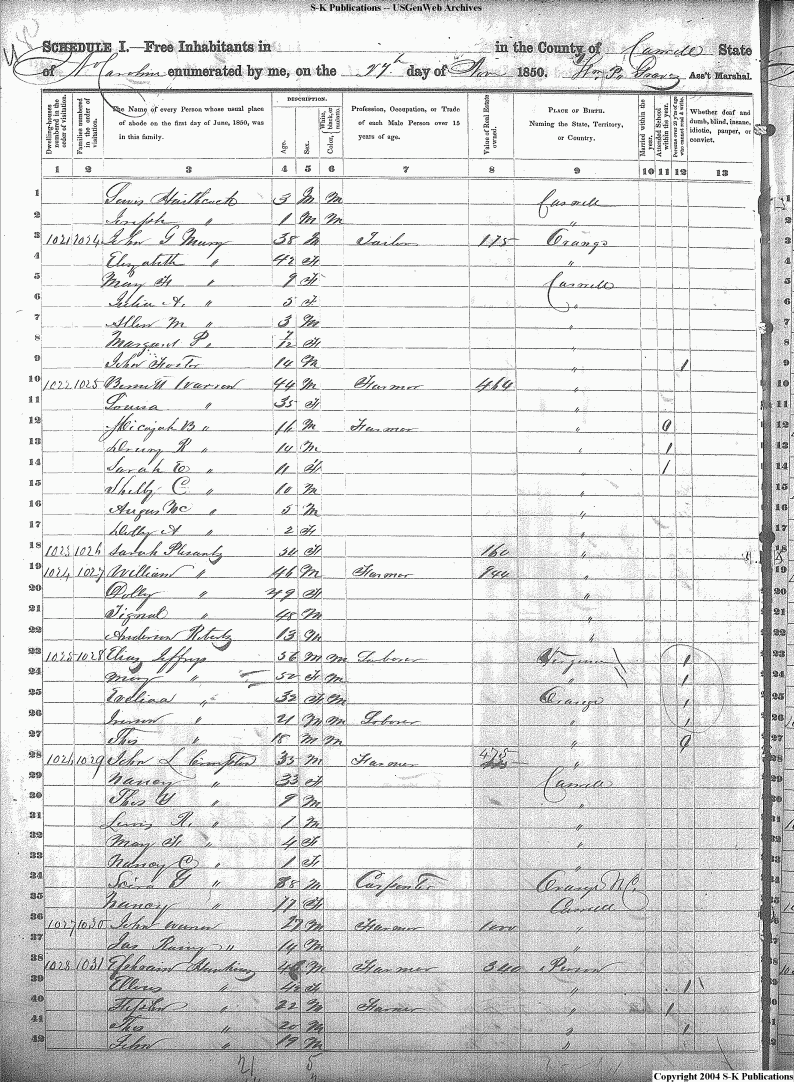 S-K Publications -- USGenWeb Archives
SCHEDULE I.—Free Inhabitants in in the County of Caswell State
of No Carolina enumerated by me, on the 27th day of Nov 1850. Wm P. Graves Ass't Marshal.
Dwelling-houses numbered in the order of visitation.
Families numbered in the order of visitation.
The Name of every Person whose usual place of abode on the first day of June, 1850, was in this family.
DESCRIPTION.
Age.
Sex.
Color, White, black, or mulatto.
Profession, Occupation, or Trade of each Male Person over 15 years of age.
Value of Real Estate owned.
PLACE OF BIRTH. Naming the State, Territory, or Country.
Married within the year.
Attended School within the year.
Persons over 20 y'rs of age who cannot read & write.
Whether deaf and dumb, blind, insane, idiotic, pauper, or convict.
1 2 3 4 5 6 7 8 9 10 11 12 13
1 Lewis 3 M M Caswell 1
2 Joseph " 1 M M " 2
3 1021 1024 John G 38 M Tailor 175 Orange 3
4 Elizabeth " 42 F " 4
5 Mary F " 9 F Caswell 5
6 Julia A. " 5 F " 6
7 M " 3 M " 7
8 Margaret P. 7/12 F 8
9 John Foster 14 M " 1 9
10 1022 1025 Bennett Warren 44 M Farmer 464 " 10
11 Louisa " 35 F " 11
12 Micajah B " 16 M Farmer " 12
13 Drury R " 14 M " 1 13
14 Sarah E " 11 F 1 14
15 Shelby C " 10 M " 15
16 Angus Mc " 5 M " 16
17 Dolly A " 2 F " 17
18 1023 1026 Sarah F 160 " 18
19 1024 1027 William " 46 M Farmer 940 " 19
20 Dolly " 49 F " 20
21 " 48 M " 21
22 Anderson Roberts 13 M " 22
23 1025 1028 Elias Jeffreys 56 M M Laborer Virginia 1 23
24 Mary " 52 F M " 1 24
25 Evelina " 32 F M Orange 1 25
26 " 21 M M Laborer " 1 26
27 Thos " 18 M M " 27
28 1026 1029 John L Compton 35 M Farmer 475 " 28
29 Nancy " 33 F Caswell 29
30 Thos Y " 9 M " 30
31 Lewis R. " 1 M " 31
32 Mary F " 4 F " 32
33 Nancy C " 1 F " 33
34 G " M Carpenter Orange N.C. 34
35 Nancy " 17 F Caswell 35
36 1027 1030 John Warren 27 M Farmer 1000 " 36
37 Jas " 14 M " 37
38 1028 1031 Ephraim Hawkins M Farmer 340 Person 38
39 " F " 1 39
40 Stephen " 22 M Farmer " 1 40
41 Thos " 20 M " 1 41
42 John " 19 M " 42
21 5
Copyright 2004 S-K Publications